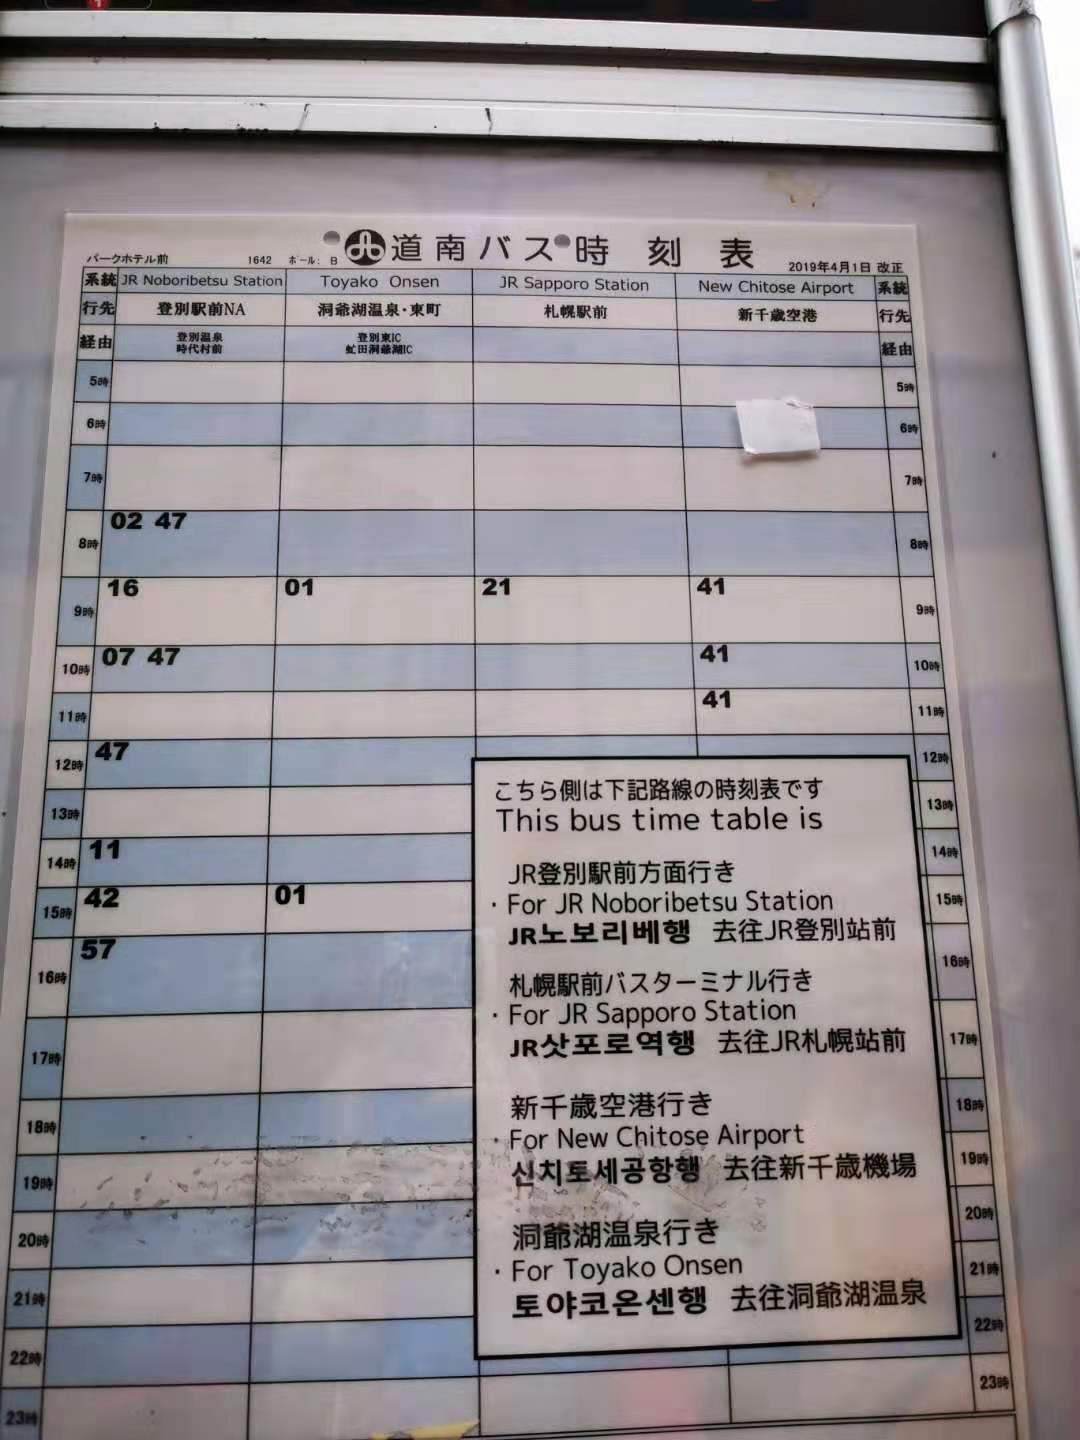 道南バス時刻表
パークホテル前 1642 ホール: B 2019年4月1日 改正
系統 JR Noboribetsu Station Toyako Onsen JR Sapporo Station New Chitose Airport 系統
行先 登別駅前NA 洞爺湖温泉・東町 札幌駅前 新千歳空港 行先
経由 登別温泉 登別東IC 経由
時代村前 虻田洞爺湖IC
5時 5時
6時 6時
7時 7時
8時 02 47 8時
9時 16 01 21 41 9時
10時 07 47 41 10時
11時 41 11時
12時 47 12時
13時 13時
14時 11 14時
15時 42 01 15時
16時 57 16時
17時 17時
18時 18時
19時 19時
20時 20時
21時 21時
22時 22時
23時 23時
こちら側は下記路線の時刻表です
This bus time table is
JR登別駅前方面行き
・For JR Noboribetsu Station
JR노보리베행 去往JR登別站前
札幌駅前バスターミナル行き
・For JR Sapporo Station
JR삿포로역행 去往JR札幌站前
新千歳空港行き
・For New Chitose Airport
신치토세공항행 去往新千歳機場
洞爺湖温泉行き
・For Toyako Onsen
토야코온센행 去往洞爺湖温泉